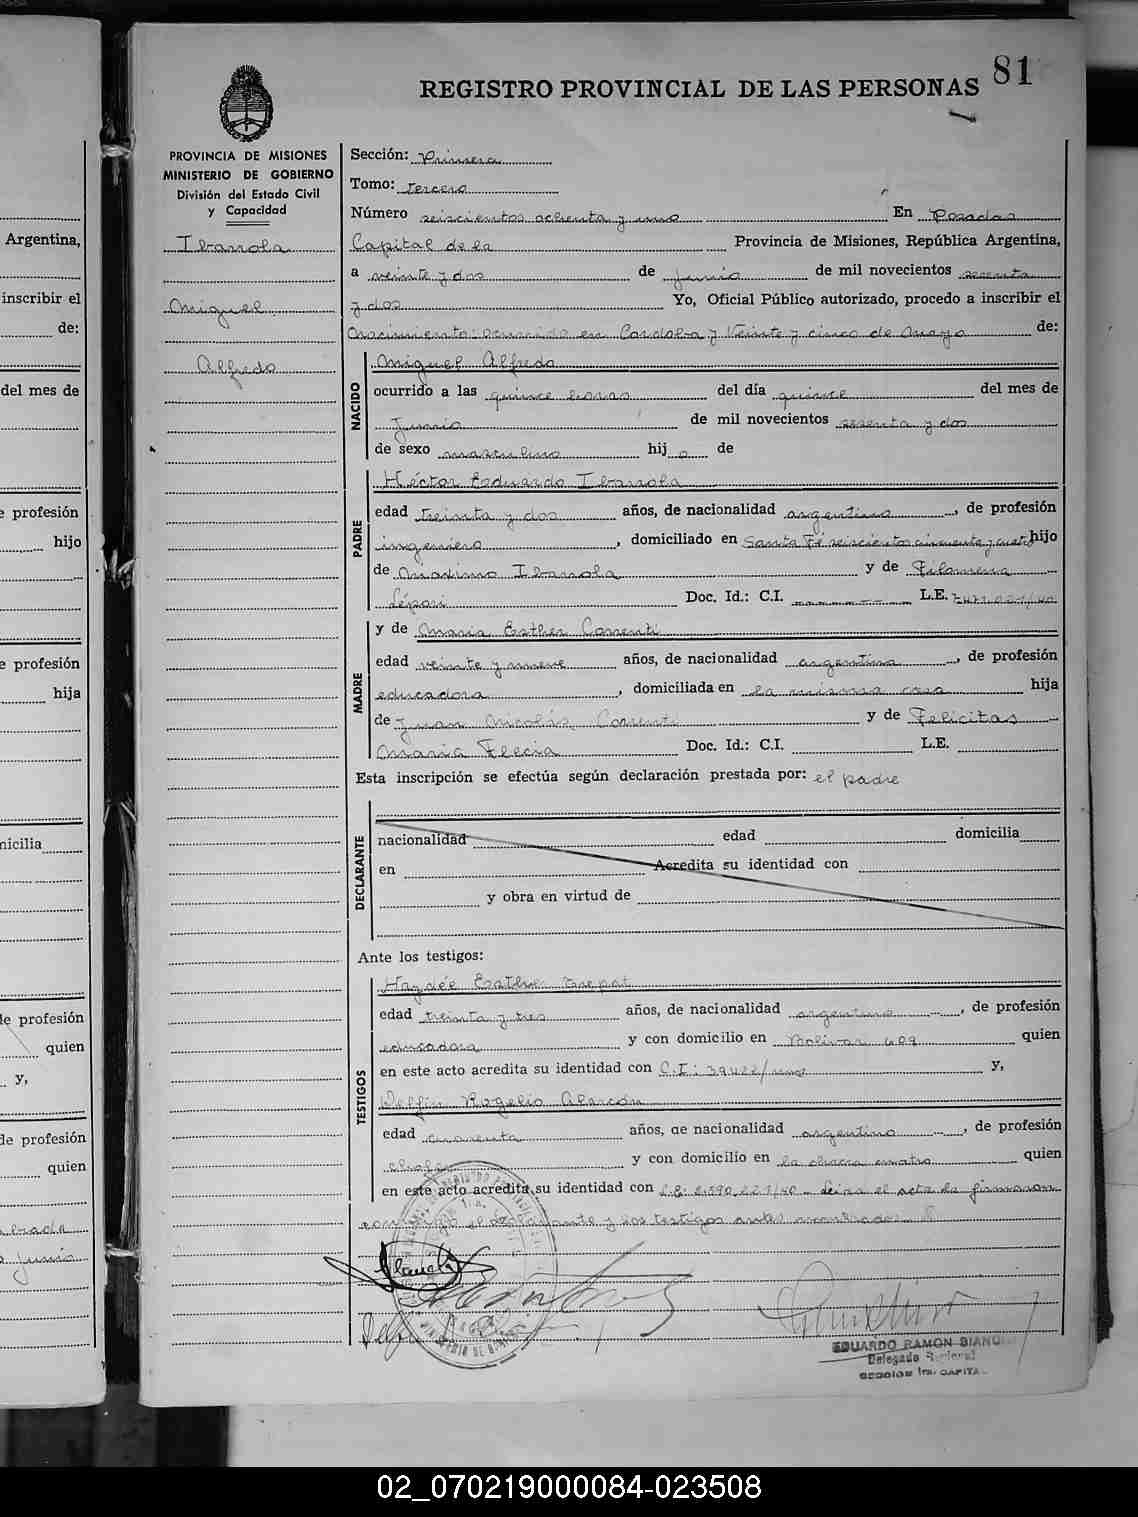 81
REGISTRO PROVINCIAL DE LAS PERSONAS
PROVINCIA DE MISIONES
MINISTERIO DE GOBIERNO
División del Estado Civil
y Capacidad
Ibarrola
Miguel
Alfredo
Sección: Primera
Tomo: tercero
Número seiscientos ochenta y uno En Posadas
Capital de la Provincia de Misiones, República Argentina,
a veinte y dos de junio de mil novecientos sesenta
y dos Yo, Oficial Público autorizado, procedo a inscribir el
nacimiento: ocurrido en Cordoba y Veinte y cinco de Mayo de:
NACIDO
Miguel Alfredo
ocurrido a las quince horas del día quince del mes de
Junio de mil novecientos sesenta y dos
de sexo masculino hij o de
PADRE
Héctor Eduardo Ibarrola
edad treinta y dos años, de nacionalidad argentino, de profesión
ingeniero, domiciliado en Santa Fé seiscientos cincuenta y cuatro hijo
de Máximo Ibarrola y de Filomena
Lépori Doc. Id.: C.I. L.E.
MADRE
y de María Esther Correnti
edad veinte y nueve años, de nacionalidad argentina, de profesión
educadora, domiciliada en la misma casa hija
de Juan Nicolás Correnti y de Felicitas
María Flecia Doc. Id.: C.I. L.E.
Esta inscripción se efectúa según declaración prestada por: el padre
DECLARANTE
nacionalidad edad domicilia
en Acredita su identidad con
y obra en virtud de
Ante los testigos:
TESTIGOS
Haydée Esther
edad treinta y tres años, de nacionalidad argentina, de profesión
educadora y con domicilio en Bolivar 609 quien
en este acto acredita su identidad con C.I: 39422/ y,
Delfin Rogelio Alarcón
edad cuarenta años, de nacionalidad argentino, de profesión
chofer y con domicilio en la chacra cuatro quien
en este acto acredita su identidad con L.E. 2.590.221/40 Leida el acta la firmaron
conmigo el declarante y los testigos antes nombrados
EDUARDO RAMON
Delegado Regional
SECCION 1ra. CAPITAL
Argentina,
inscribir el
de:
del mes de
profesión
hijo
profesión
hija
nicilia
de profesión
quien
y,
de profesión
quien
junio
02_070219000084-023508